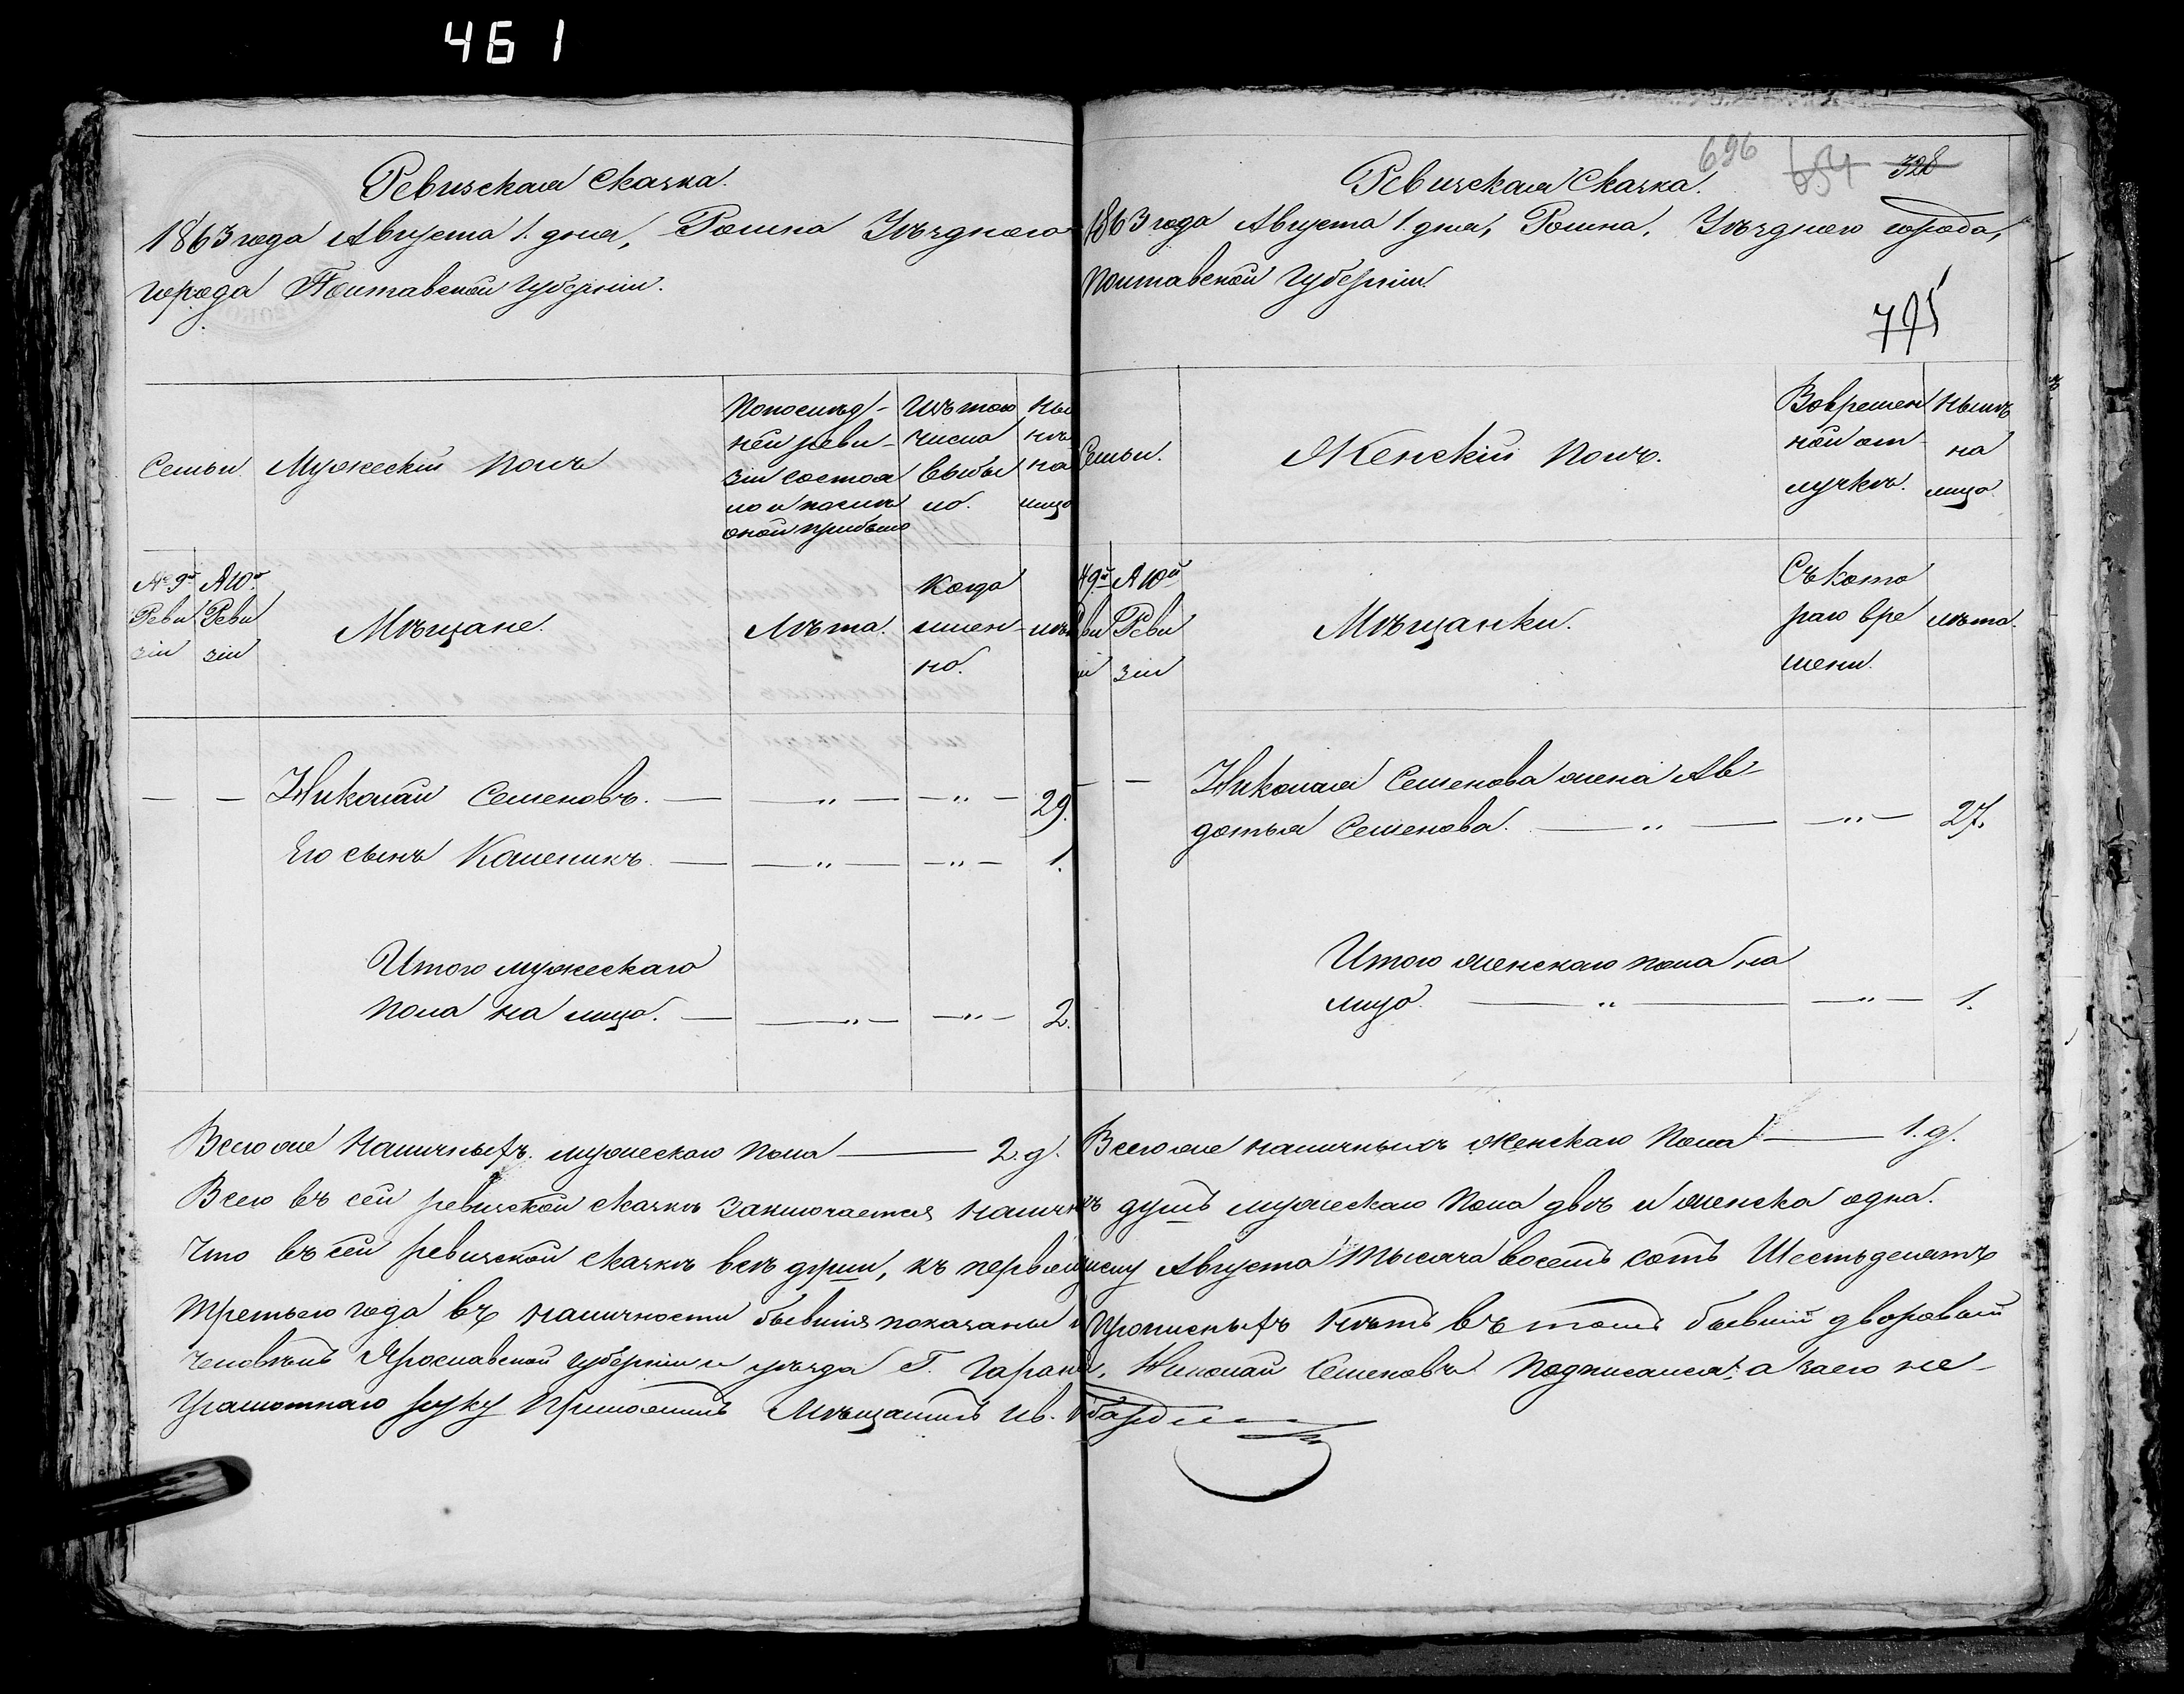 461
Ревизская Сказка.
1863 года Августа 1. дня, Ромна Уѣзднаго
города Полтавской губерніи.
Семьи.
Мужескій полъ
По послѣд-
ней реви-
зіи состоя
ло и послѣ
оной прибыло
Изъ того
числа
выбы
ло.
Ны
нѣ
на
лицо
№ 9й
Реви
зіи
№ 10й
Реви
зіи
Мѣщане.
Лѣта.
Когда
имен-
но.
лѣт
— — Николай Семеновъ. — — „ — — „ — 29.
Его сынъ — — „ — — „ — 1.
Итого мужескаго
пола на лицо. — — „ — — „ — 2.
Всего же наличныхъ мужескаго пола — 2. д.
696 654 328
Ревизская Сказка.
1863 года Августа 1. дня, Ромна, Уѣзднаго города,
Полтавской губерніи.
795
Семьи.
Женскій полъ.
Во времен
ной от-
лучкѣ.
Нынѣ
на
лицо.
№ 9й
Реви
зіи
№ 10й
Реви
зіи
Мѣщанки.
Съ кото
раго вре
мени.
лѣта.
— — Николая Семенова жена Ав-
дотья Семенова. — „ — — „ — 27.
Итого женскаго пола на
лицо. — „ — — „ — 1.
Всего же наличныхъ женскаго пола — 1. д.
Всего въ сей ревизской сказкѣ заключается наличныхъ душъ мужескаго пола двѣ и женска одна.
Что въ сей ревизской сказкѣ всѣ души, къ первому числу Августа тысяча восемь сотъ шестьдесятъ
третьяго года въ наличности бывшія показаны и прописныхъ нѣтъ въ томъ бывшій дворовый
человѣкъ Ярославской губерніи и уѣзда Г. Николай Семеновъ подписался, а за его не-
грамотнаго руку приложилъ Мѣщанинъ Ив.